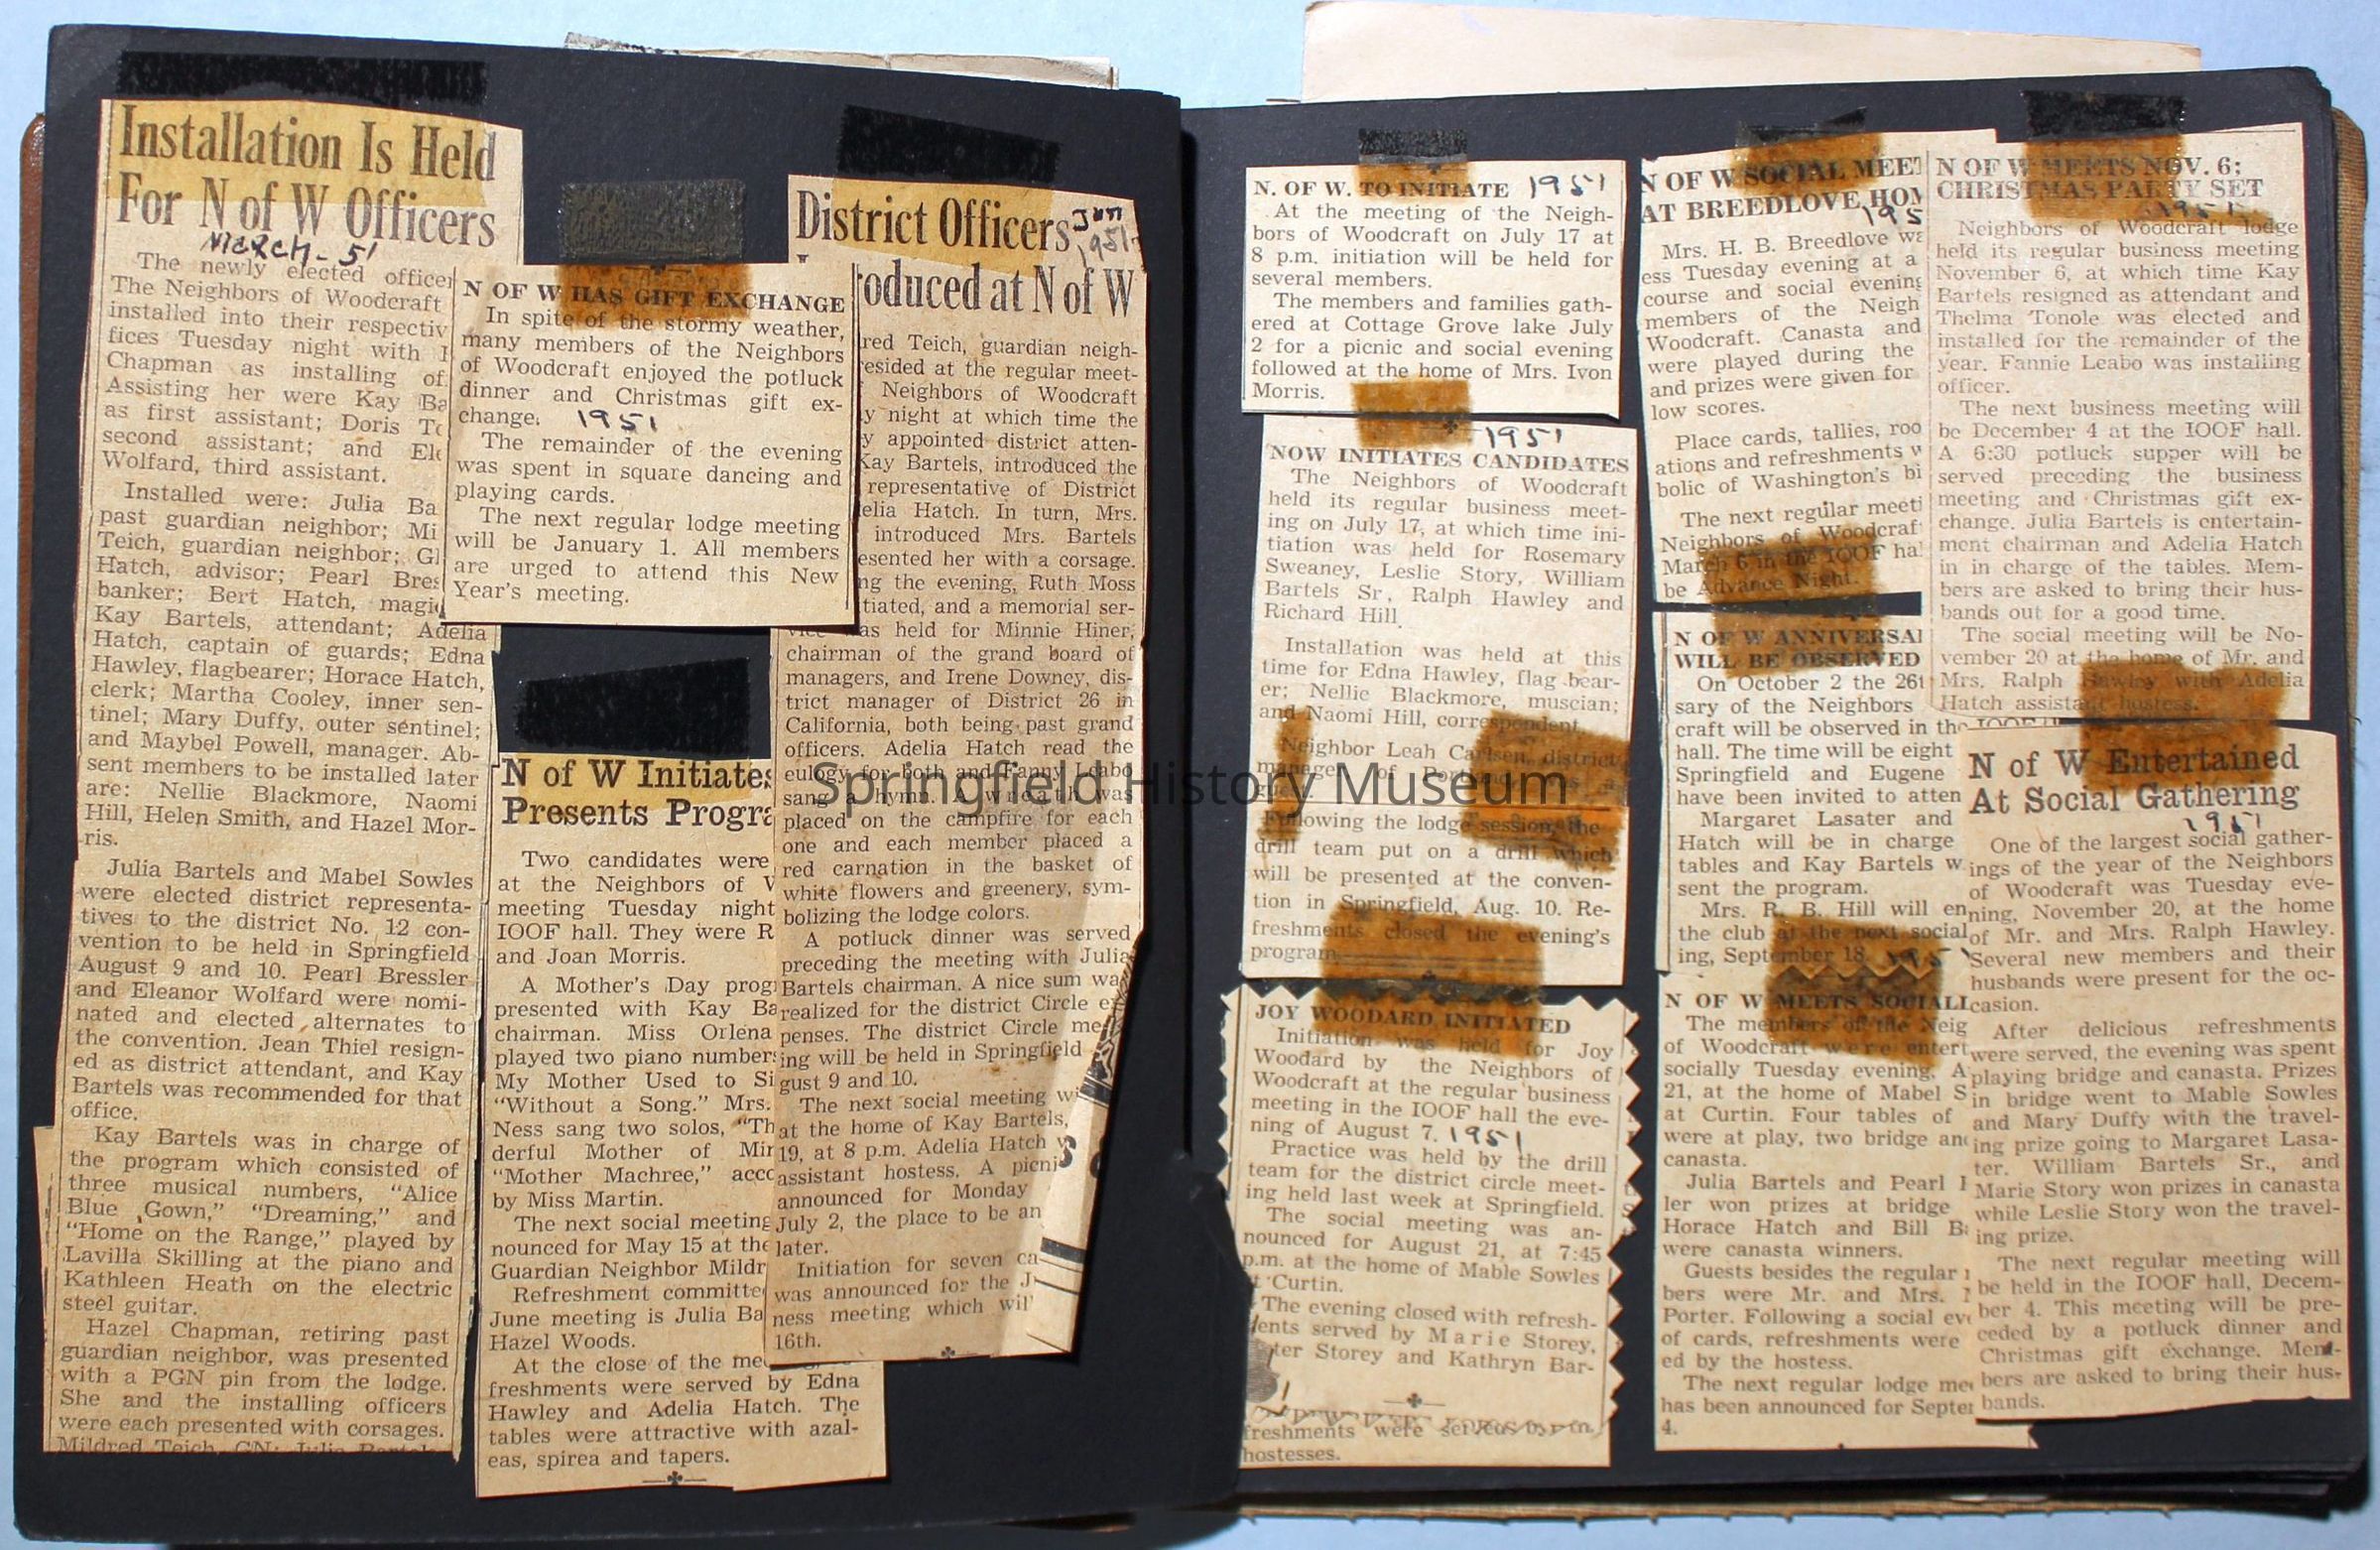 Installation Is Held
For N of W Officers
March - 51
The newly elected officer
The Neighbors of Woodcraft
installed into their respectiv
fices Tuesday night with
Chapman as installing of
Assisting her were Kay Ba
as first assistant; Doris To
second assistant; and Ele
Wolfard, third assistant.
Installed were: Julia Ba
past guardian neighbor; Mi
Teich, guardian neighbor; Gl
Hatch, advisor; Pearl Bres
banker; Bert Hatch, magi
Kay Bartels, attendant; Adelia
Hatch, captain of guards; Edna
Hawley, flagbearer; Horace Hatch,
clerk; Martha Cooley, inner sen-
tinel; Mary Duffy, outer sentinel;
and Maybel Powell, manager. Ab-
sent members to be installed later
are: Nellie Blackmore, Naomi
Hill, Helen Smith, and Hazel Mor-
ris.
Julia Bartels and Mabel Sowles
were elected district representa-
tives to the district No. 12 con-
vention to be held in Springfield
August 9 and 10. Pearl Bressler
and Eleanor Wolfard were nomi-
nated and elected alternates to
the convention. Jean Thiel resign-
ed as district attendant, and Kay
Bartels was recommended for that
office.
Kay Bartels was in charge of
the program which consisted of
three musical numbers, "Alice
Blue Gown," "Dreaming," and
"Home on the Range," played by
Lavilla Skilling at the piano and
Kathleen Heath on the electric
steel guitar.
Hazel Chapman, retiring past
guardian neighbor, was presented
with a PGN pin from the lodge.
She and the installing officers
were each presented with corsages.
Mildred Teich, GN; Julia Bartels
N OF W HAS GIFT EXCHANGE
In spite of the stormy weather,
many members of the Neighbors
of Woodcraft enjoyed the potluck
dinner and Christmas gift ex-
change. 1951
The remainder of the evening
was spent in square dancing and
playing cards.
The next regular lodge meeting
will be January 1. All members
are urged to attend this New
Year's meeting.
N of W Initiates
Presents Progra
Two candidates were
at the Neighbors of W
meeting Tuesday night
IOOF hall. They were R
and Joan Morris.
A Mother's Day prog
presented with Kay Ba
chairman. Miss Orlena
played two piano numbers
My Mother Used to Si
"Without a Song." Mrs.
Ness sang two solos, "Th
derful Mother of Min
"Mother Machree," acco
by Miss Martin.
The next social meeting
nounced for May 15 at the
Guardian Neighbor Mildr
Refreshment committe
June meeting is Julia Ba
Hazel Woods.
At the close of the mee
freshments were served by Edna
Hawley and Adelia Hatch. The
tables were attractive with azal-
eas, spirea and tapers.
District Officers
Jun
1951
oduced at N of W
red Teich, guardian neigh-
esided at the regular meet-
Neighbors of Woodcraft
y night at which time the
y appointed district atten-
Kay Bartels, introduced the
representative of District
elia Hatch. In turn, Mrs.
introduced Mrs. Bartels
esented her with a corsage.
ng the evening, Ruth Moss
tiated, and a memorial ser-
vice was held for Minnie Hiner,
chairman of the grand board of
managers, and Irene Downey, dis-
trict manager of District 26 in
California, both being past grand
officers. Adelia Hatch read the
eulogy for both and Fanny Leabo
sang a hymn. A wreath was
placed on the campfire for each
one and each member placed a
red carnation in the basket of
white flowers and greenery, sym-
bolizing the lodge colors.
A potluck dinner was served
preceding the meeting with Julia
Bartels chairman. A nice sum wa
realized for the district Circle ex
penses. The district Circle mee
ing will be held in Springfield
gust 9 and 10.
The next social meeting wi
at the home of Kay Bartels,
19, at 8 p.m. Adelia Hatch w
assistant hostess. A picni
announced for Monday
July 2, the place to be an
later.
Initiation for seven ca
was announced for the J
ness meeting which wil
16th.
N. OF W. TO INITIATE 1951
At the meeting of the Neigh-
bors of Woodcraft on July 17 at
8 p.m. initiation will be held for
several members.
The members and families gath-
ered at Cottage Grove lake July
2 for a picnic and social evening
followed at the home of Mrs. Ivon
Morris.
1951
NOW INITIATES CANDIDATES
The Neighbors of Woodcraft
held its regular business meet-
ing on July 17, at which time ini-
tiation was held for Rosemary
Sweaney, Leslie Story, William
Bartels Sr, Ralph Hawley and
Richard Hill.
Installation was held at this
time for Edna Hawley, flag bear-
er; Nellie Blackmore, muscian;
and Naomi Hill, correspondent.
Neighbor Leah Carlsen, district
manager of
Following the lodge session, the
drill team put on a drill which
will be presented at the conven-
tion in Springfield, Aug. 10. Re-
freshments closed the evening's
program.
JOY WOODARD INITIATED
Initiation was held for Joy
Woodard by the Neighbors of
Woodcraft at the regular business
meeting in the IOOF hall the eve-
ning of August 7. 1951
Practice was held by the drill
team for the district circle meet-
ing held last week at Springfield.
The social meeting was an-
nounced for August 21, at 7:45
p.m. at the home of Mable Sowles
t Curtin.
The evening closed with refresh-
ents served by Marie Storey,
ter Storey and Kathryn Bar-
freshments were served by
hostesses.
N OF W SOCIAL MEET
AT BREEDLOVE HOM
195
Mrs. H. B. Breedlove wa
ess Tuesday evening at a
course and social evening
members of the Neigh
Woodcraft. Canasta and
were played during the
and prizes were given for
low scores.
Place cards, tallies, roo
ations and refreshments w
bolic of Washington's bi
The next regular meeti
Neighbors of Woodcraf
March 6 in the IOOF ha
be Advance Night.
N OF W ANNIVERSAR
WILL BE OBSERVED
On October 2 the 26t
sary of the Neighbors
craft will be observed in the
hall. The time will be eight
Springfield and Eugene
have been invited to atten
Margaret Lasater and
Hatch will be in charge
tables and Kay Bartels w
sent the program.
Mrs. R. B. Hill will en
the club at the next social
ing, September 18. 195
N OF W MEETS SOCIALL
The members of the Neig
of Woodcraft were entert
socially Tuesday evening, A
21, at the home of Mabel S
at Curtin. Four tables of
were at play, two bridge an
canasta.
Julia Bartels and Pearl
ler won prizes at bridge
Horace Hatch and Bill Ba
were canasta winners.
Guests besides the regular
bers were Mr. and Mrs.
Porter. Following a social ev
of cards, refreshments were
ed by the hostess.
The next regular lodge mee
has been announced for Septe
4.
N OF W MEETS NOV. 6;
CHRISTMAS PARTY SET
1951
Neighbors of Woodcraft lodge
held its regular business meeting
November 6, at which time Kay
Bartels resigned as attendant and
Thelma Tonole was elected and
installed for the remainder of the
year. Fannie Leabo was installing
officer.
The next business meeting will
be December 4 at the IOOF hall.
A 6:30 potluck supper will be
served preceding the business
meeting and Christmas gift ex-
change. Julia Bartels is entertain-
ment chairman and Adelia Hatch
in in charge of the tables. Mem-
bers are asked to bring their hus-
bands out for a good time.
The social meeting will be No-
vember 20 at the home of Mr. and
Mrs. Ralph Hawley with Adelia
Hatch assistant hostess.
N of W Entertained
At Social Gathering
1951
One of the largest social gather-
ings of the year of the Neighbors
of Woodcraft was Tuesday eve-
ning, November 20, at the home
of Mr. and Mrs. Ralph Hawley.
Several new members and their
husbands were present for the oc-
casion.
After delicious refreshments
were served, the evening was spent
playing bridge and canasta. Prizes
in bridge went to Mable Sowles
and Mary Duffy with the travel-
ing prize going to Margaret Lasa-
ter. William Bartels Sr., and
Marie Story won prizes in canasta
while Leslie Story won the travel-
ing prize.
The next regular meeting will
be held in the IOOF hall, Decem-
ber 4. This meeting will be pre-
ceded by a potluck dinner and
Christmas gift exchange. Mem-
bers are asked to bring their hus-
bands.
Springfield History Museum